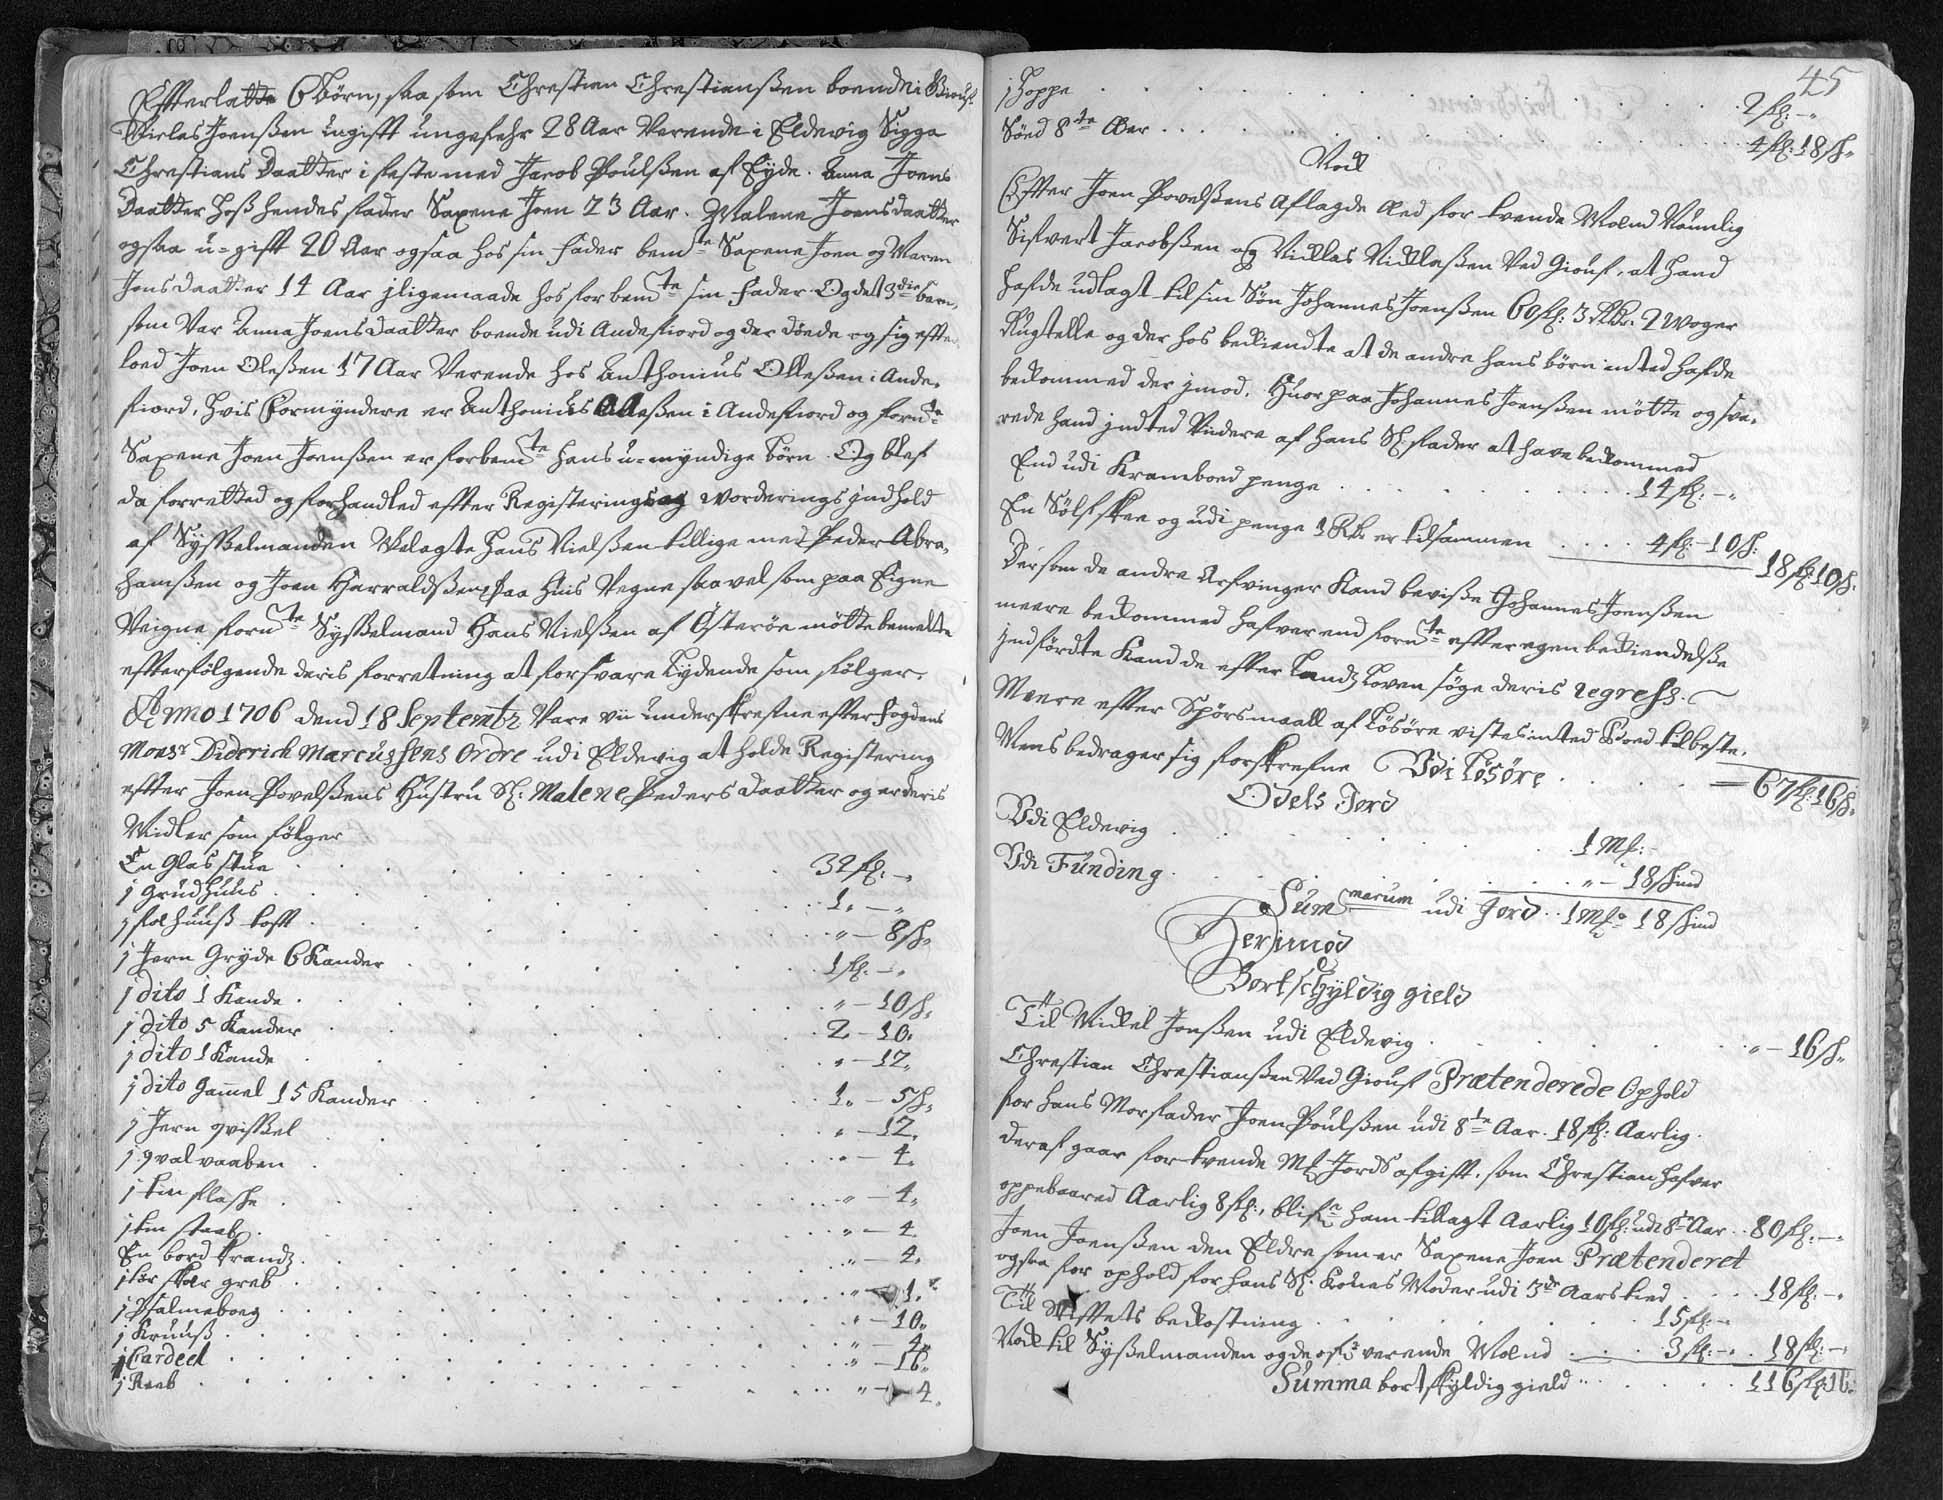 Effterlatte 6 børn, saa som Chrestian Chrestianßen boende i Giouf
Niclas Joenßen ugifft ungefehr 28 Aar Værende i Eldevig Sigga
Chrestians Daatter i feste med Jacob Poulßen af Eyde. Anna Joens
Daatter hoß hendes fader Saxene Joen 23 Aar. Malene Joensdaatter
ogsaa u-gifft 20 Aar ogsaa hos sin fader bemte Saxene Joen og Maren
Jonsdaatter 14 Aar iligemaade hos forbemte sin fader. Og det 3die barn,
som Var Anna Joensdaatter boende udi Andefiord og der døede og sig effter
loed Joen Oleßen 17 Aar Verende hos Anthonius Olleßen i Ande-
fiord, hvis Formyndere er Anthonius Olleßen i Andefiord og fornte
Saxene Joen Joenßen er forbemte hans u-myndige børn. Og blef
da forretted og forhandled effter Registerings og Worderings indhold
af Sysselmanden Welagte Hans Nielßen tillige med Peder Abra-
hamßen og Joen Harraldßen, paa hvis Vegne saavel som paa Eigne
Veigne fornte Sysselmand Hans Nielßen af Østerøe møtte bemelte
effterfølgende deris forretning at forsvare Lydende som følger.
Anno 1706 dend 18 Septembr Vare vii underskrefne effter fogdens
Monsr Diderich Marcussens Ordre udi Eldevig at holde Registering
effter Joen Povelßens Hustru Sl: Malene Peders daatter og er deris
Midler som følger
En Glas stue . . . 32 fl: — "
j Grudhuus . . . 1. — "
j folhuuß loft . . . " — 8 s.
j Jern Gryde 6 Kander . . . 1 fl: — "
j dito 1 Kande . . . " — 10 s.
j dito 5 Kander . . . 2 — 10.
j dito 1 Kande . . . " — 12.
j dito Gammel 15 Kander . . . 1. — 5 s.
j Jern qvissel . . . " — 12.
j qval vaaben . . . " — 4.
j tin flashe . . . " — 4.
j tin staab . . . " — 4
En bord krandz . . . " — 4.
j tør skoer greb . . . " — 1.
j Psalmeboeg . . . " — 10.
j Kruuß . . . " — 4.
j Cardeel . . . " — 16.
j Reeb . . . " — 4.
45
j Hoppe . . . 2 fl: — "
Søed 8te Øer . . . 4 fl: 18 s.
Nock
Effter Joen Povelßens Aflagde Æed for tvende Mænd Naunlig
Sifvert Jacobßen og Nicklas Nicklaßen Ved Giouf, at hand
hafde udlagt til sin Søn Johannes Joenßen 60 fl: 3 Rdr. 2 Woger
Rugtelle og der hos bekiendte at de andre hans børn inted hafde
bekommed der imod. Huor paa Johannes Joenßen møtte og sva-
rede hand indted Videre af hans Sl: fader at have bekommed
End udi Kramboed penge . . . 14 fl: — "
En Sølf skee og udi penge 1 Rdr er tilsammen . . . 4 fl: — 10 s. 18 fl: 10 s.
Dersom de andre Arfvinger Kand beviße Johannes Joenßen
meere bekommed hafver end fornte effter egen bekiendelße
indførdte Kand de effter Landz Loven søge deris regress.
Meere effter Spørsmaall af Løsøre vistes inted Boed til beste.
Mens bedrager sig forskrefne Udi Løsøre . . . 67 fl: 16 s.
Odels Jord
Udi Eldevig . . . 1 Mf: —
Udi Funding . . . " — 18 skind
Summarum udi Jord . . 1 Mf: 18 skind
Herimod
Bortschyldig gield
Til Mickel Jonßen udi Eldevig . . . " — 16 s.
Chrestian Chrestianßen Ved Giouf Prætenderede Ophold
for hans Morfader Joen Poulßen udi 8te Aar. 18 fl: Aarlig.
deraf gaar for tvende Mf Jords afgifft, som Chrestian hafver
oppebaared Aarlig 8 fl:, blifr ham tillagt Aarlig 10 fl: udi 8te Aar . . 80 fl: — "
Joen Joenßen den Eldre som er Saxene Joen Prætenderet
ogsaa for ophold for hans Sl: Kones Moder udi 3de Aars tied . . . 18 fl: — "
Til Skifftets bekostning . . . 15 fl: —
Nock til Sysselmanden og de ofr verende Mænd . . . 3 fl: — . 18 fl: —
Summa bortskyldig gield . . . 116 fl: 16.